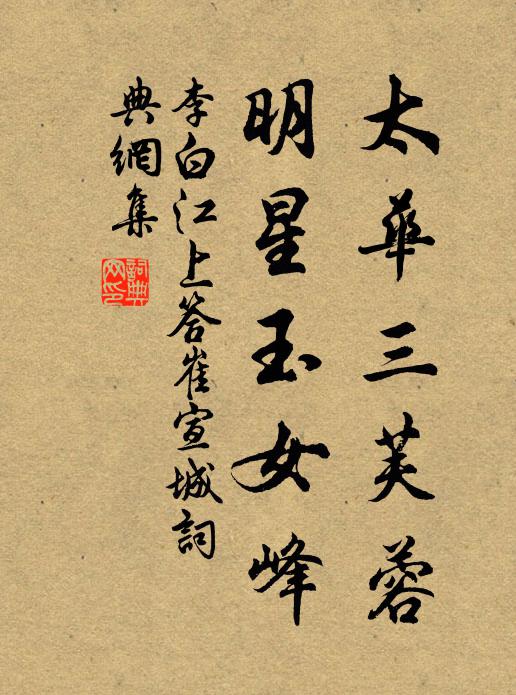 太華三芙蓉
明星玉女峰
李白江上答崔宣城詞
典網集
詞典
网印